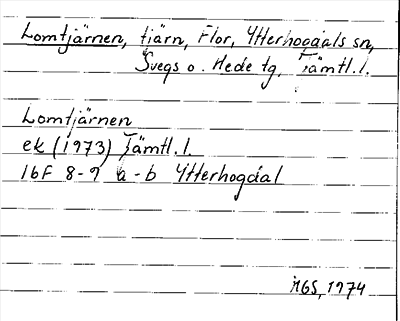 Lomtjärnen, tjärn, Flor, Ytterhogdals sn,
Svegs o. Hede tg, Jämtl.l.
Lomtjärnen
ek (1973) Jämtl.l.
16F 8-9 a-b Ytterhogdal
MGS, 1974